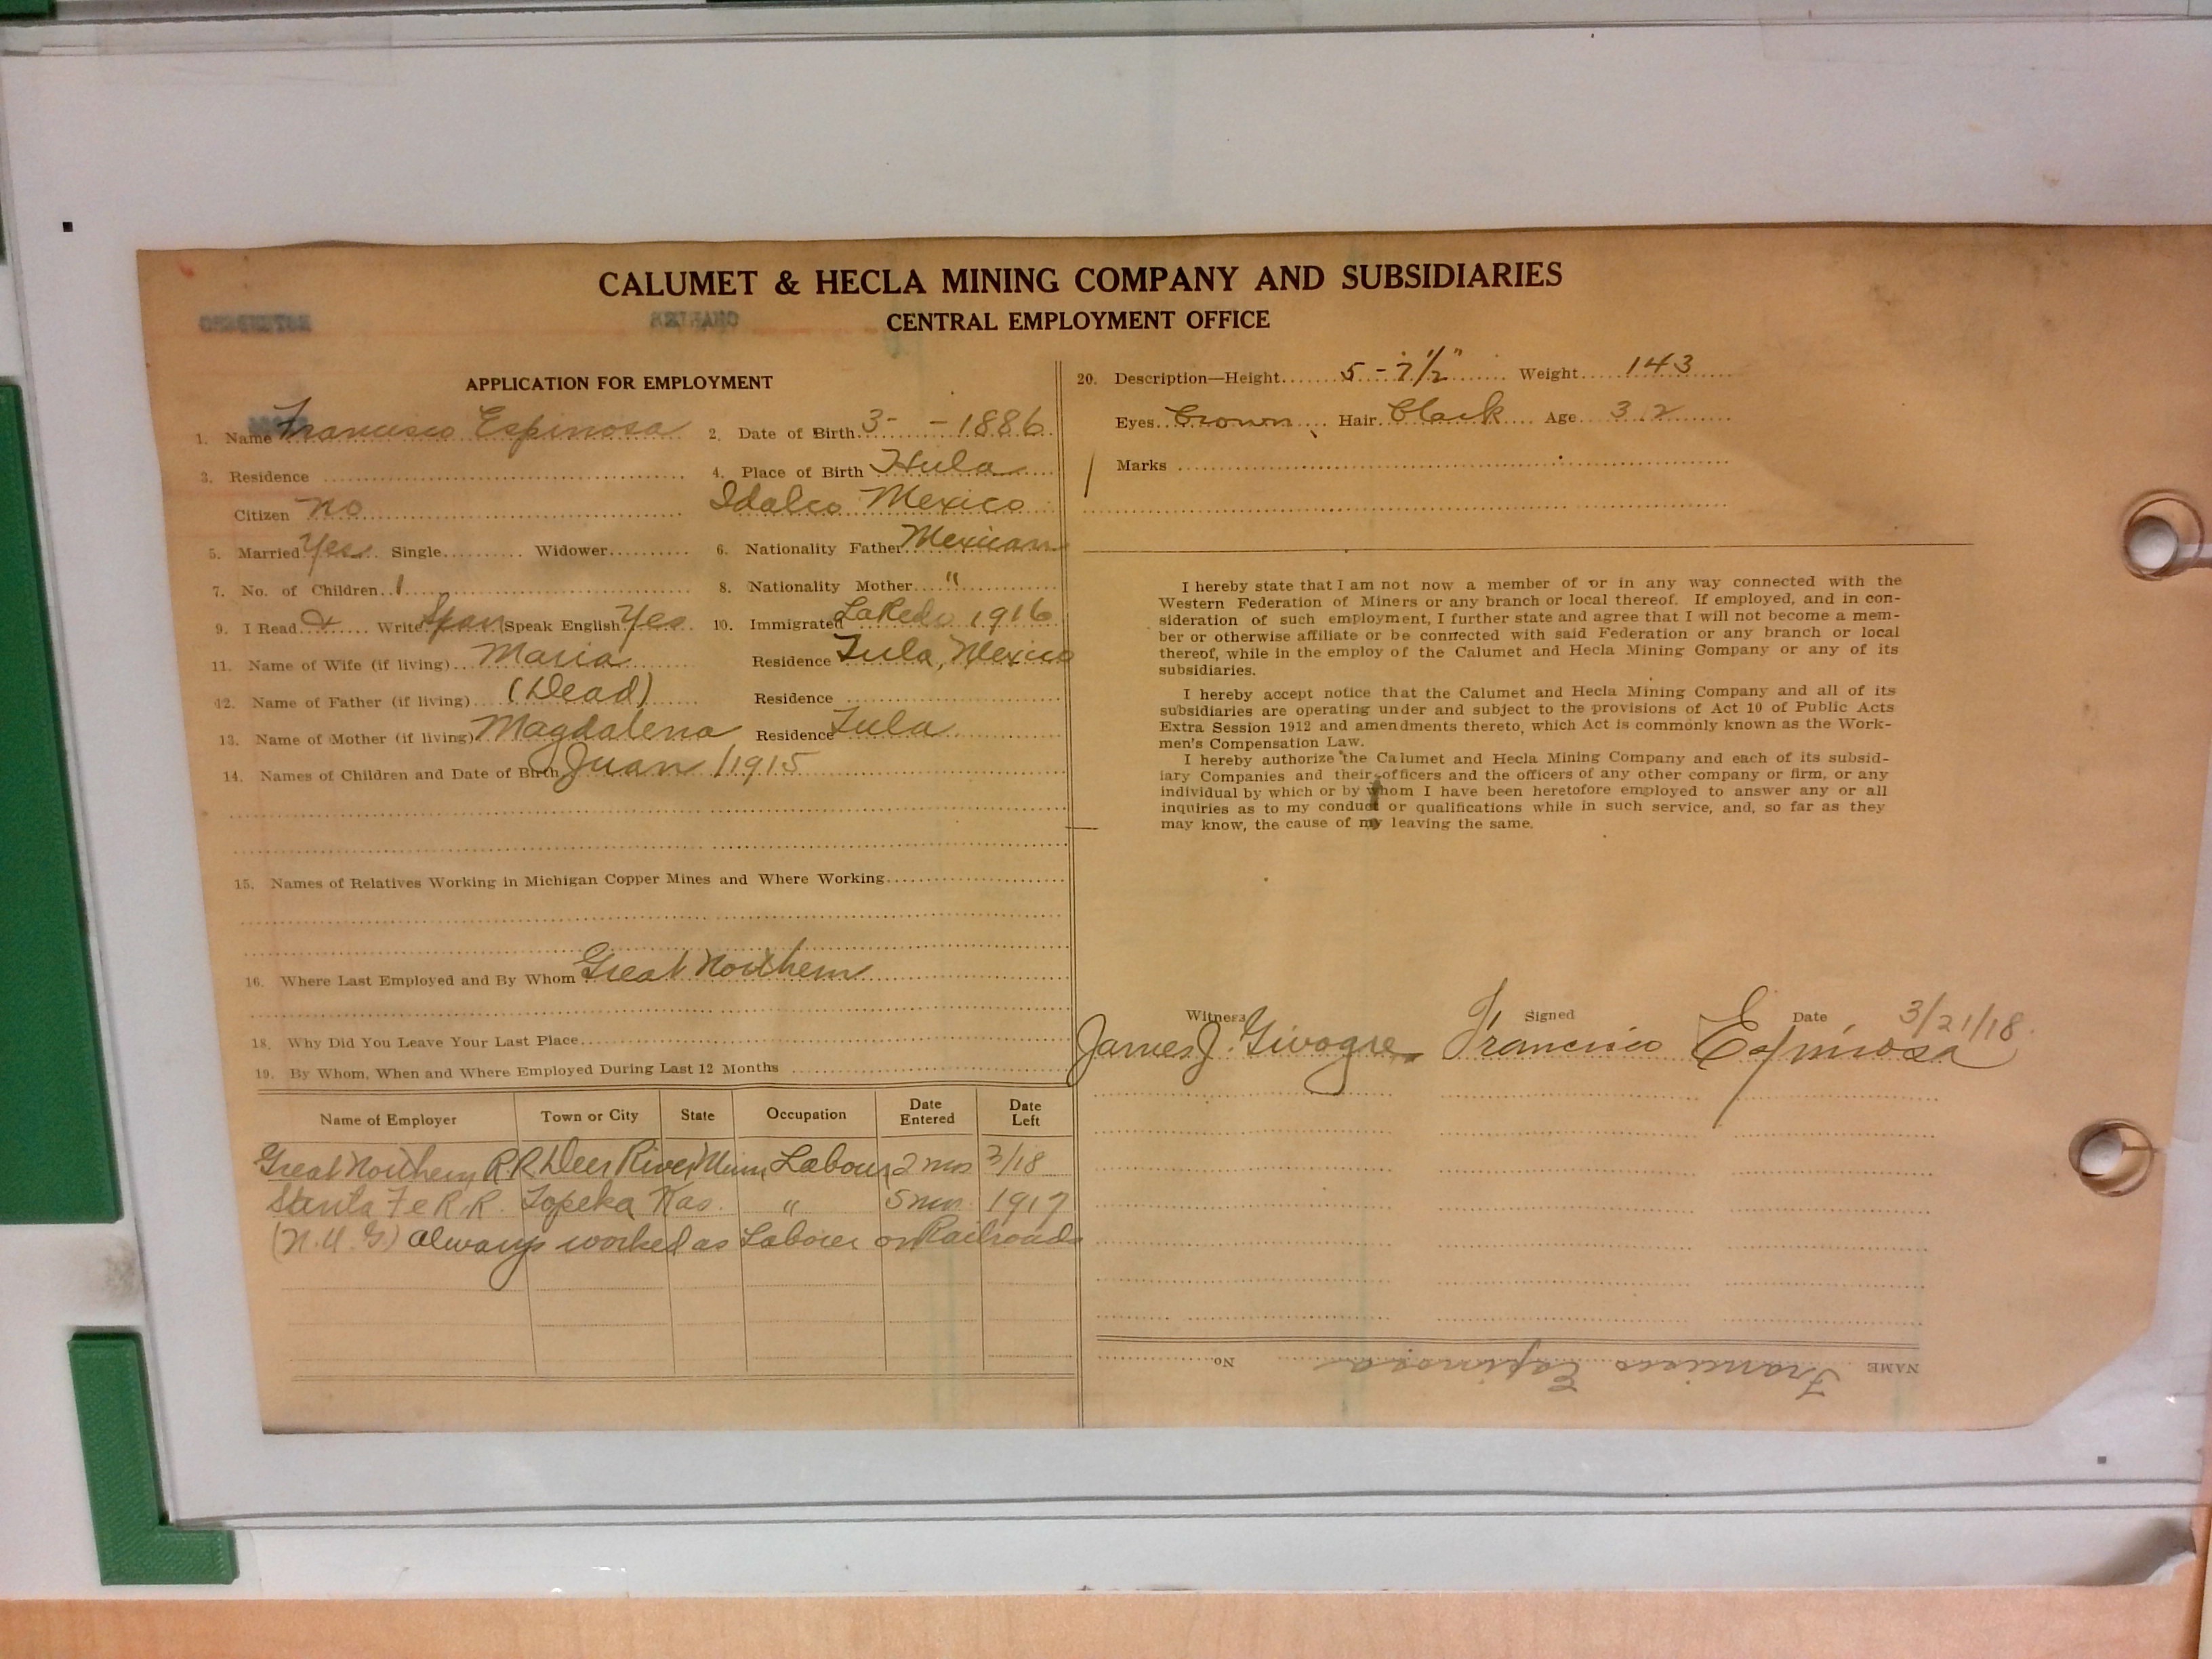 CALUMET & HECLA MINING COMPANY AND SUBSIDIARIES
CENTRAL EMPLOYMENT OFFICE
APPLICATION FOR EMPLOYMENT
1. Name Francisco Espinosa 2. Date of Birth 3- -1886
3. Residence 4. Place of Birth Hula
Citizen no Idalco Mexico
5. Married Yes Single Widower 6. Nationality Father Mexican
7. No. of Children 1 8. Nationality Mother "
9. I Read & Write Span Speak English Yes 10. Immigrated Laredo 1916
11. Name of Wife (if living) Maria Residence Tula, Mexico
12. Name of Father (if living) (Dead) Residence
13. Name of Mother (if living) Magdalena Residence Tula
14. Names of Children and Date of Birth Juan / 1915
15. Names of Relatives Working in Michigan Copper Mines and Where Working
16. Where Last Employed and By Whom Great Northern
18. Why Did You Leave Your Last Place
19. By Whom, When and Where Employed During Last 12 Months
Name of Employer Town or City State Occupation Date Entered Date Left
Great Northern R.R. Deer River Minn Labour 2 mos 3/18
Santa Fe R.R. Topeka Kas. " 5 mos 1917
(N.U.G) always worked as Labour on Railroads
20. Description—Height 5-7½" Weight 143
Eyes Brown Hair Black Age 32
Marks
I hereby state that I am not now a member of or in any way connected with the
Western Federation of Miners or any branch or local thereof. If employed, and in con-
sideration of such employment, I further state and agree that I will not become a mem-
ber or otherwise affiliate or be connected with said Federation or any branch or local
thereof, while in the employ of the Calumet and Hecla Mining Company or any of its
subsidiaries.
I hereby accept notice that the Calumet and Hecla Mining Company and all of its
subsidiaries are operating under and subject to the provisions of Act 10 of Public Acts
Extra Session 1912 and amendments thereto, which Act is commonly known as the Work-
men's Compensation Law.
I hereby authorize the Calumet and Hecla Mining Company and each of its subsid-
iary Companies and their officers and the officers of any other company or firm, or any
individual by which or by whom I have been heretofore employed to answer any or all
inquiries as to my conduct or qualifications while in such service, and, so far as they
may know, the cause of my leaving the same.
Witness Signed Date 3/21/18
James J. Francisco Espinosa
NAME Francisco Espinosa No.